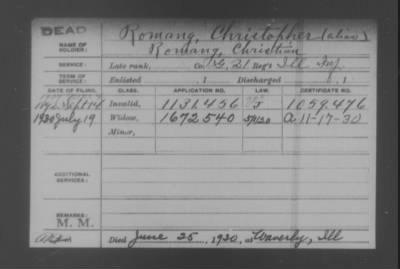 DEAD
Romang, Christopher (alias)
NAME OF SOLDIER:
Romang, Christian
SERVICE: Late rank, Co. G, 21 Reg't Ill. Inf.
TERM OF SERVICE: Enlisted , 1 Discharged , 1
DATE OF FILING. CLASS. APPLICATION NO. LAW. CERTIFICATE NO.
Sept 14 Invalid, 1131.456 1059.476
1920 July 19 Widow, 1672540 A 11-17-30
Minor,
ADDITIONAL SERVICES:
REMARKS:
M. M.
Died June 25, 1920, at Waverly, Ill